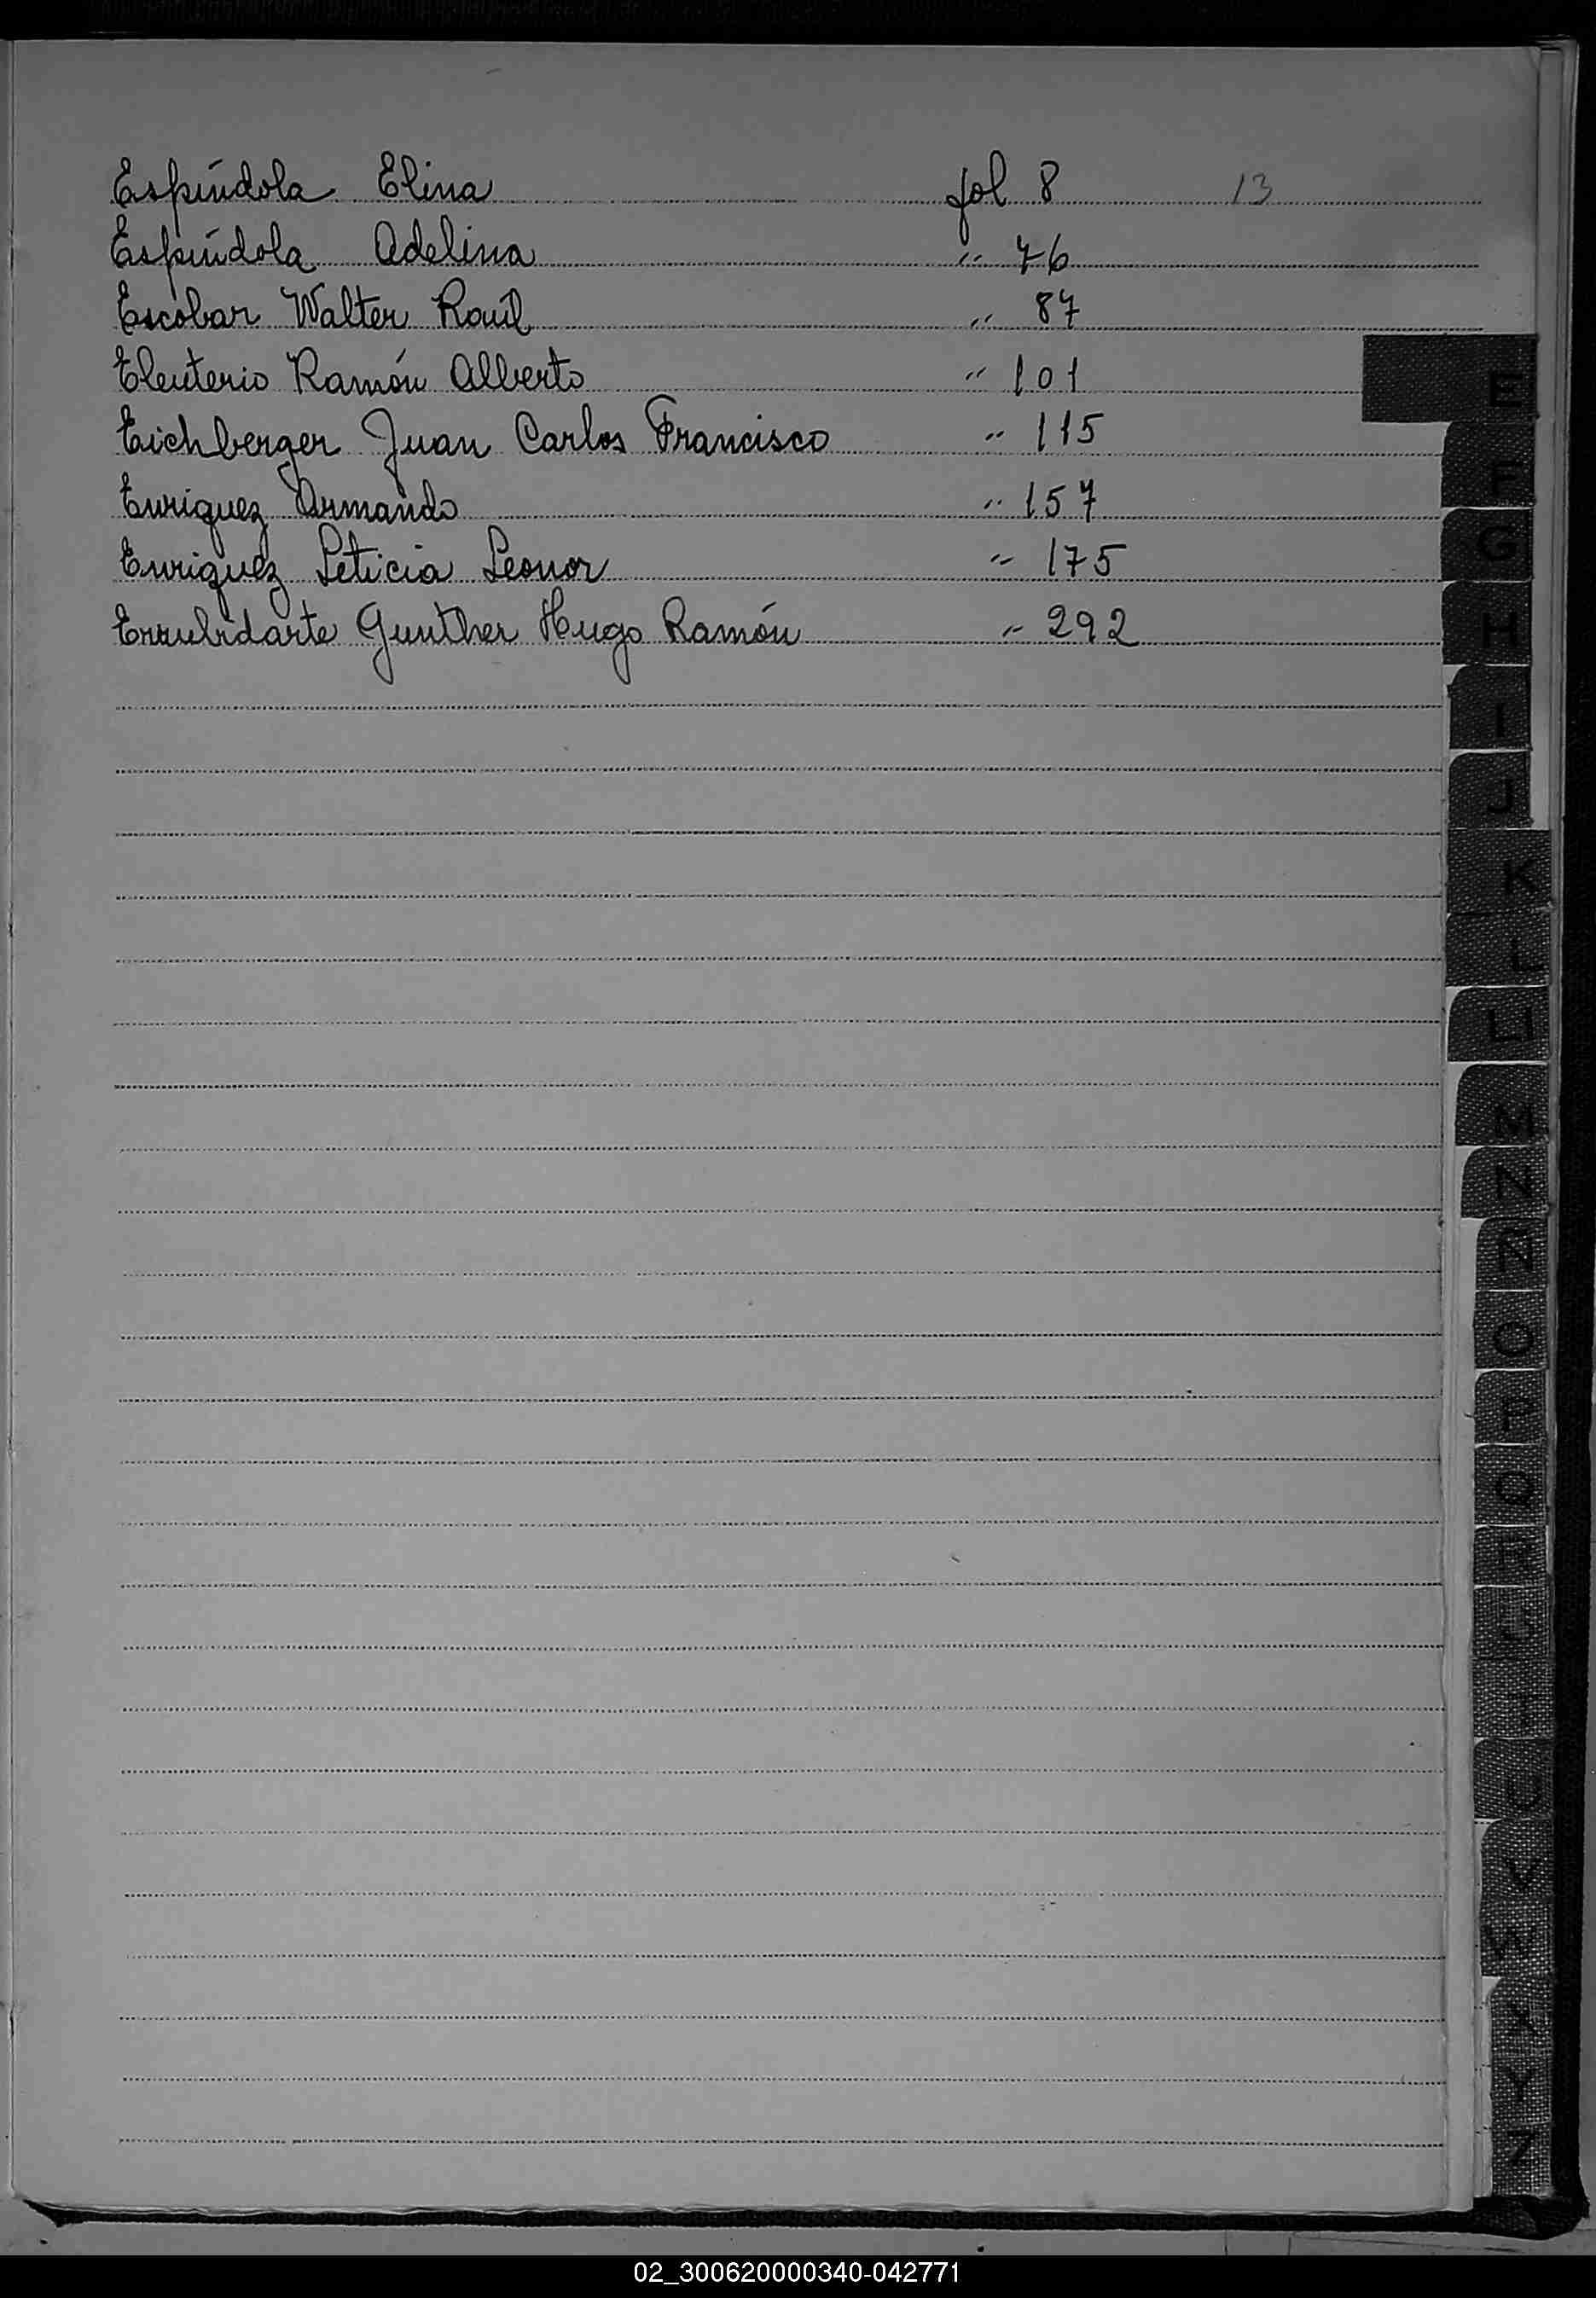 Espíndola Elina fol 8 13
Espíndola Adelina " 76
Escobar Walter Raúl " 87
Eleuterio Ramón Alberto " 101
Eichberger Juan Carlos Francisco " 115
Enriquez Armando " 157
Enriquez Leticia Leonor " 175
Errubidarte Gunther Hugo Ramón " 292
E
F
G
H
I
J
K
L
Ll
M
N
Ñ
O
P
Q
R
S
T
U
V
W
X
Y
Z
02_300620000340-042771